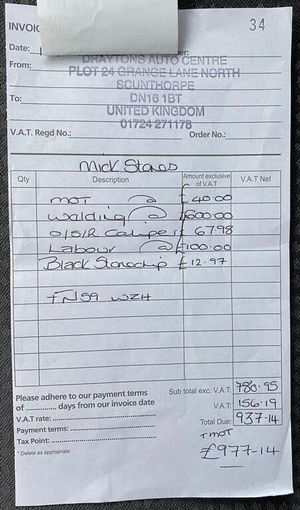 INVOIC
34
Date:
DRAYTONS AUTO CENTRE
From:
PLOT 24 GRANGE LANE NORTH
SCUNTHORPE
To:
DN16 1BT
UNITED KINGDOM
V.A.T. Regd No.: 01724 271176 Order No.:
Mick Stones
Qty Description Amount exclusive of V.A.T V.A.T Net
MOT @ £40.00
Walding @ £600.00
O/S/R Caliper 67.98
Labour @ £100.00
Black Stonechip £12.97
FN59 WZH
Please adhere to our payment terms
of ............ days from our invoice date
V.A.T rate:
Payment terms:
Tax Point:
* Delete as appropriate
Sub total exc. V.A.T: 780.95
V.A.T: 156.19
Total Due: 937.14
+ MOT
£977.14